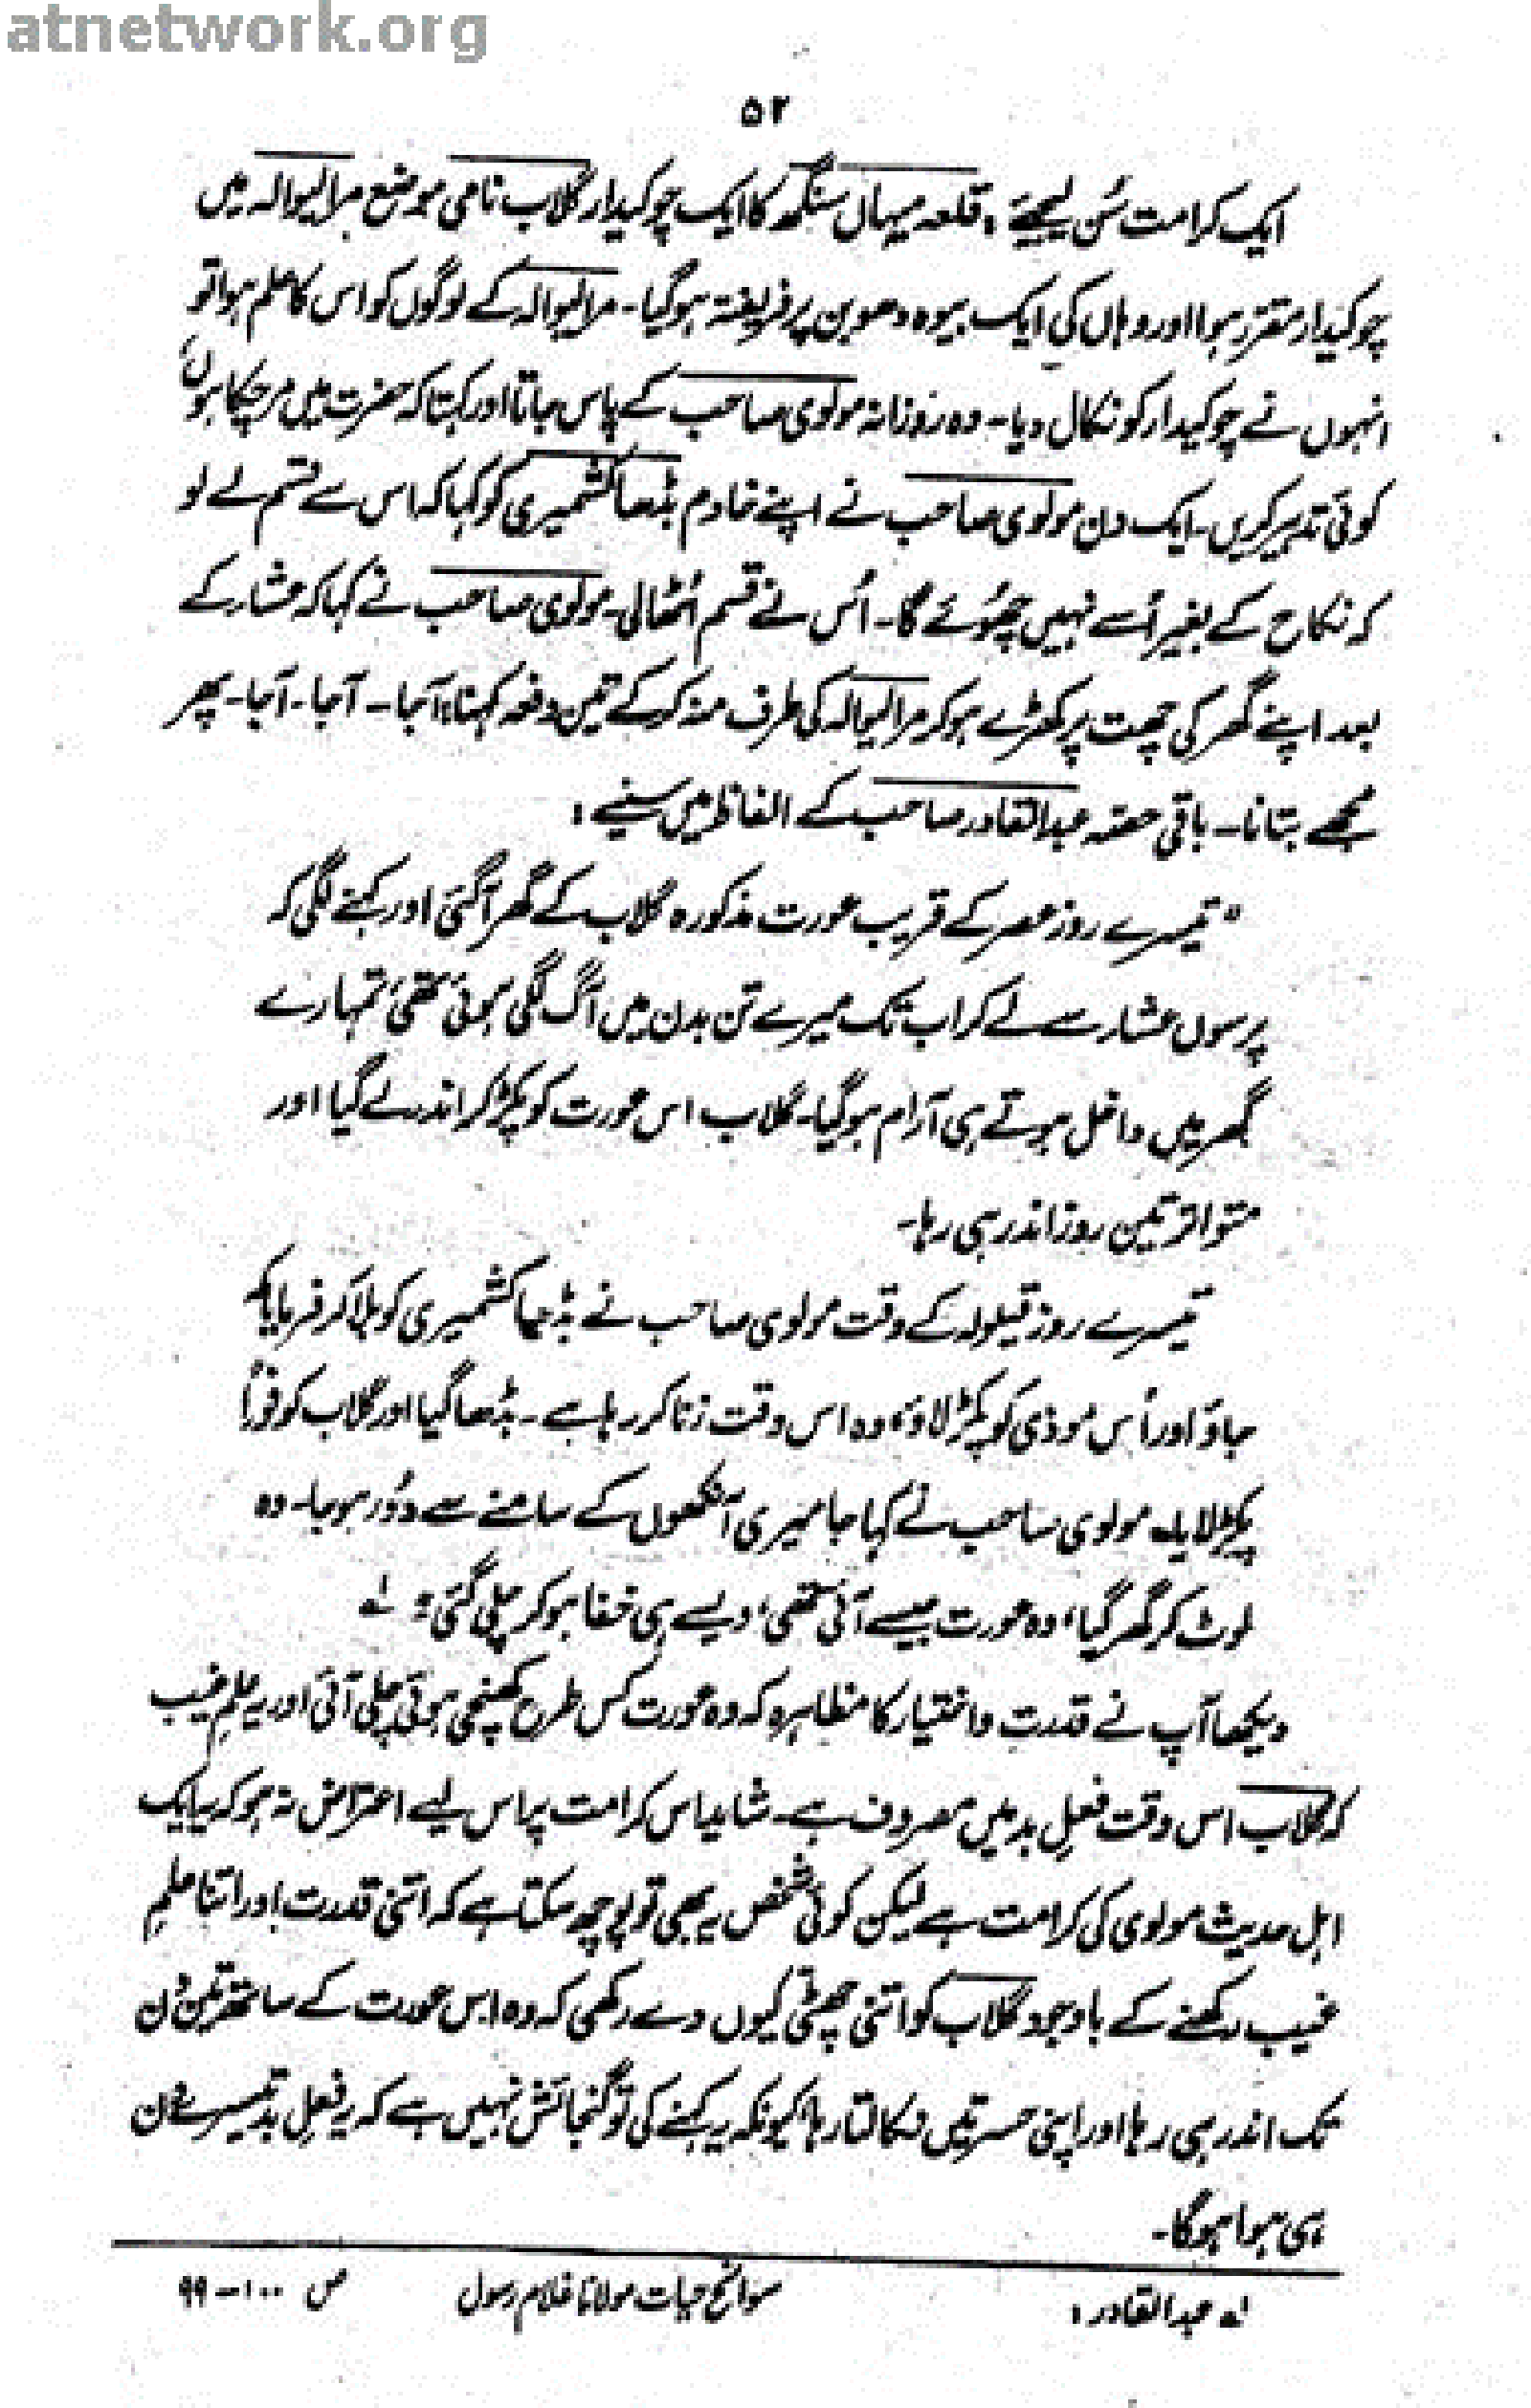 atnetwork.org
۵۲
ایک کرامت سُن لیجئے : قلعہ میہاں سنگھ کا ایک چوکیدار گلاب نامی موضع مرالیوالہ میں
چوکیدار مقرر ہوا اور وہاں کی ایک بیوہ دھوبن پر فریفتہ ہوگیا۔ مرالیوالہ کے لوگوں کو اس کا علم ہوا تو
انہوں نے چوکیدار کو نکال دیا۔ وہ روزانہ مولوی صاحب کے پاس جاتا اور کہتا کہ حضرت میں مرچکا ہوں،
کوئی تدبیر کریں۔ ایک دن مولوی صاحب نے اپنے خادم بڈھا کشمیری کو کہا کہ اس سے قسم لے لو
کہ نکاح کے بغیر اُسے نہیں چھوُئے گا۔ اُس نے قسم اُٹھالی۔ مولوی صاحب نے کہا کہ عشار کے
بعد اپنے گھر کی چھت پر کھڑے ہوکر مرالیوالہ کی طرف منہ کرکے تین دفعہ کہنا: آجا۔ آجا۔ آجا۔ پھر
مجھے بتانا۔ باقی حصہ عبدالقادر صاحب کے الفاظ میں سنیے :
" تیسرے روز عصر کے قریب عورت مذکورہ گلاب کے گھر آگئی اور کہنے لگی کہ
پرسوں عشار سے لے کر اب تک میرے تن بدن میں آگ لگی ہوئی تھی، تمہارے
گھر میں داخل ہوتے ہی آرام ہوگیا۔ گلاب اس عورت کو پکڑ کر اندر لے گیا اور
متواتر تین روز اندر ہی رہا۔
تیسرے روز قیلولہ کے وقت مولوی صاحب نے بڈھا کشمیری کو بلا کر فرمایا کہ
جاؤ اور اُس موذی کو پکڑ لاؤ، وہ اس وقت زنا کر رہا ہے۔ بڈھا گیا اور گلاب کو فوراً
پکڑ لایا۔ مولوی صاحب نے کہا جا میری آنکھوں کے سامنے سے دُور ہوجا۔ وہ
لوٹ کر گھر گیا، وہ عورت جیسے آئی تھی، ویسے ہی خفا ہوکر چلی گئی" لے
دیکھا آپ نے قدرت و اختیار کا مظاہرہ کہ وہ عورت کس طرح کھنچی ہوئی چلی آئی اور یہ علمِ غیب
کہ گلاب اس وقت فعلِ بد میں مصروف ہے۔ شاید اس کرامت پر اس لیے اعتراض نہ ہو کہ یہ ایک
اہل حدیث مولوی کی کرامت ہے لیکن کوئی شخص یہ بھی تو پوچھ سکتا ہے کہ اتنی قدرت اور اتنا علمِ
غیب رکھنے کے باوجود گلاب کو اتنی چھٹی کیوں دے رکھی کہ وہ اس عورت کے ساتھ تین دن
تک اندر ہی رہا اور اپنی حسرتیں نکالتا رہا، کیونکہ یہ کہنے کی تو گنجائش نہیں ہے کہ یہ فعلِ بد تیسرے دن
ہی ہوا ہوگا۔
لے عبدالقادر : سوانح حیات مولانا غلام رسول ص ۱۰۰-۹۹